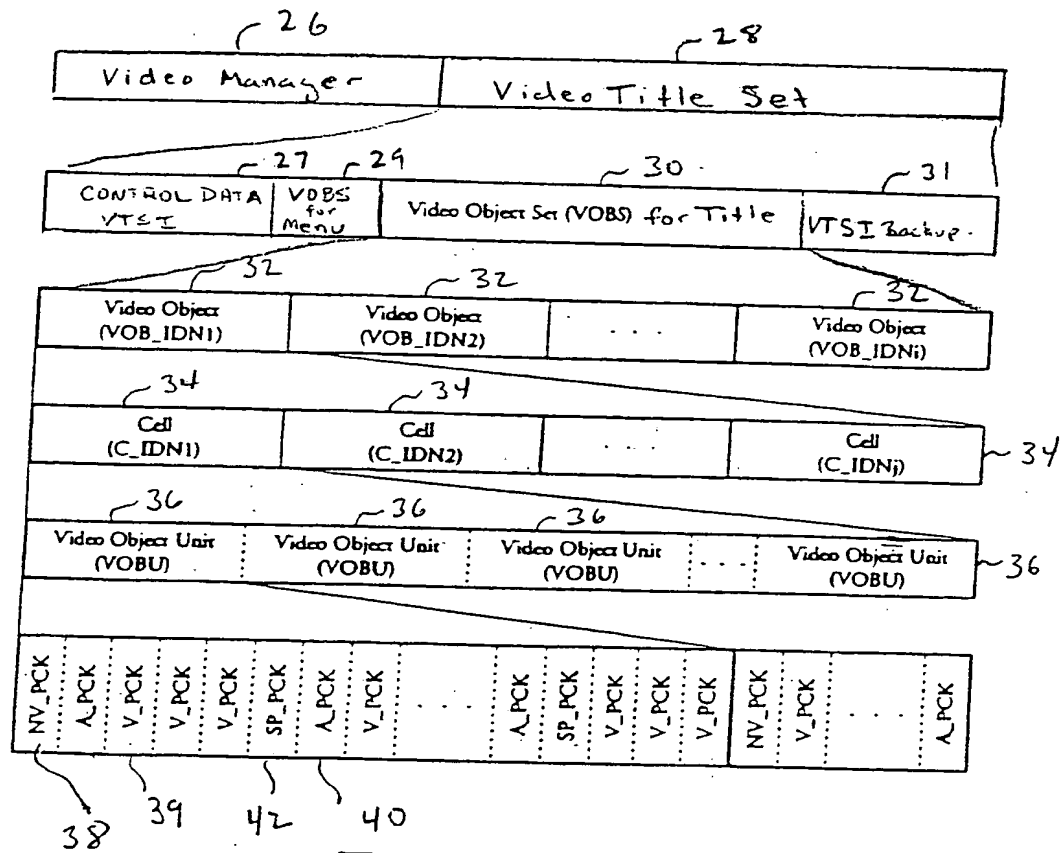 26 28
Video Manager Video Title Set
27 29 30 31
CONTROL DATA VTSI VOBS for Menu Video Object Set (VOBS) for Title VTSI Backup
32 32 32
Video Object Video Object Video Object
(VOB_IDN1) (VOB_IDN2) . . . . (VOB_IDNi)
34 34
Cell Cell Cell
(C_IDN1) (C_IDN2) . . . . (C_IDNj) 34
36 36 36
Video Object Unit Video Object Unit Video Object Unit Video Object Unit
(VOBU) (VOBU) (VOBU) . . . . (VOBU) 36
NV_PCK A_PCK V_PCK V_PCK V_PCK SP_PCK A_PCK V_PCK . . . . A_PCK SP_PCK V_PCK V_PCK V_PCK NV_PCK V_PCK . . . . A_PCK
38 39 42 40